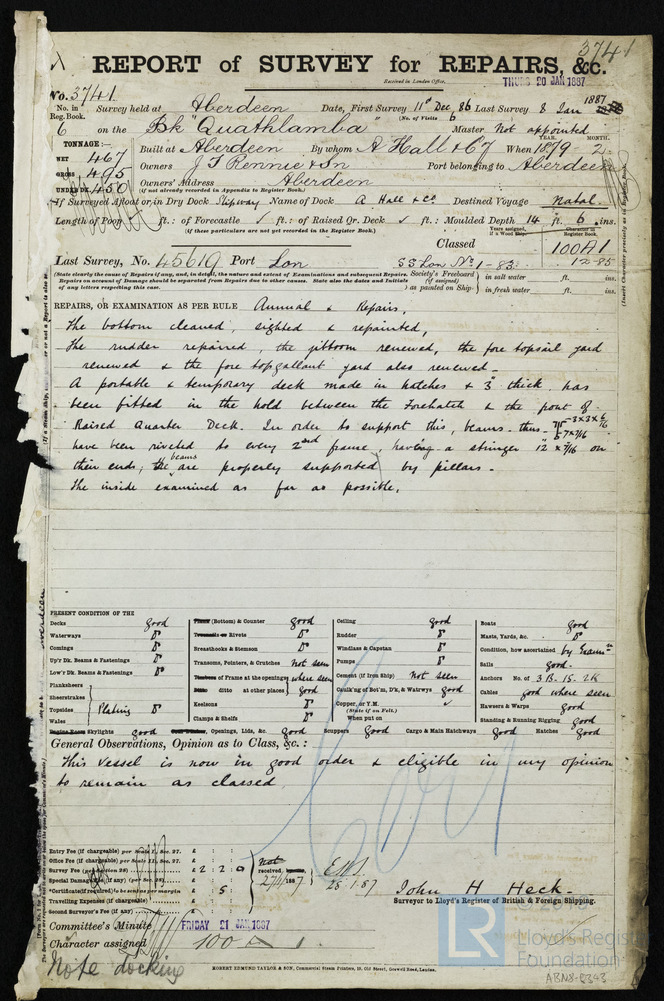 3741
REPORT of SURVEY for REPAIRS, &c.
Received in London Office,
THURS 20 JAN 1887
No. 3741
No. in Reg. Book. Survey held at Aberdeen Date, First Survey 11th Dec 86 Last Survey 8 Jan 1887
(No. of Visits 6
6 on the Bk "Quathlamba" Master Not appointed
TONNAGE:—
YEAR. MONTH.
NET 467
GROSS 495
UNDER DK 450
Built at Aberdeen By whom A Hall & Co When 1879 - 2
Owners J T Rennie & Son Port belonging to Aberdeen
Owners' Address Aberdeen
(if not already recorded in Appendix to Register Book.)
If Surveyed Afloat or in Dry Dock Slipway Name of Dock A Hall & Co Destined Voyage Natal
Length of Poop ft.: of Forecastle ft.: of Raised Qr. Deck ft.: Moulded Depth 14 ft. 6 ins.
(if these particulars are not yet recorded in the Register Book.)
Years assigned, if a Wood Ship
Character in Register Book.
Classed 100A1
12-85
Last Survey, No. 45619 Port Lon SS Lon No 1 - 83
(State clearly the cause of Repairs if any, and, in detail, the nature and extent of Examinations and subsequent Repairs.
Repairs on account of Damage should be separated from Repairs due to other causes. State also the dates and Initials
of any letters respecting this case.)
Society's Freeboard (if assigned) as painted on Ship—
in salt water ft. ins.
in fresh water ft. ins.
REPAIRS, OR EXAMINATION AS PER RULE Annual & Repairs.
The bottom cleaned, sighted & repainted,
The rudder repaired, the jibboom renewed, the fore topsail yard
renewed & the fore topgallant yard also renewed—
A portable & temporary deck made in hatches & 3" thick has
been fitted in the hold between the Forehatch & the front of
Raised Quarter Deck. In order to support this, beams thus
have been riveted to every 2nd frame, having a stringer 12" x 7/16 on
their ends; the beams are properly supported by pillars—
The inside examined as far as possible.
PRESENT CONDITION OF THE
Decks good
Waterways Do
Comings Do
Up'r Dk. Beams & Fastenings Do
Low'r Dk. Beams & Fastenings Do
Planksheers
Sheerstrakes
Topsides
Wales
Plating Do
Engine Room Skylights good
Plank (Bottom) & Counter good
Treenails or Rivets Do
Breasthooks & Stemson Do
Transoms, Pointers, & Crutches Not seen
Timbers of Frame at the openings where seen
Ditto ditto at other places good
Keelsons Do
Clamps & Shelfs Do
Openings, Lids, &c. good
Ceiling good
Rudder Do
Windlass & Capstan Do
Pumps Do
Cement (if Iron Ship) Not seen
Caulk'ng of Bot'm, D'k, & Waterwys good
Copper, or Y.M.
(State if on Felt.)
When put on
Scuppers good
Cargo & Main Hatchways good
Boats good
Masts, Yards, &c. Do
Condition, how ascertained by Exam'n
Sails good
Anchors No. of 3B. 1S. 2K
Cables good where seen
Hawsers & Warps good
Standing & Running Rigging good
Hatches good
General Observations, Opinion as to Class, &c.:
This vessel is now in good order & eligible in my opinion
to remain as classed
Entry Fee (if chargeable) per Scale I., Sec. 27. £ : :
Office Fee (if chargeable) per Scale II., Sec. 27. £ : :
Survey Fee (per Section 28) £ 2 : 2 : 0
Special Damage (if any) (per Sec. 28). £ : :
*Certificate (if required) to be sent as per margin £ : 5 :
Travelling Expenses (if chargeable) £ : :
Second Surveyor's Fee (if any) £ : :
Not received,
27/1/1887
28.1.87
John H Heck
Surveyor to Lloyd's Register of British & Foreign Shipping.
Committee's Minute FRIDAY 21 JAN 1887
Character assigned 100 A 1
Note docking
ROBERT EDMUND TAYLOR & SON, Commercial Steam Printers, 19, Old Street, Goswell Road, London.
LR
Lloyd's Register
Foundation
ABN8-8343